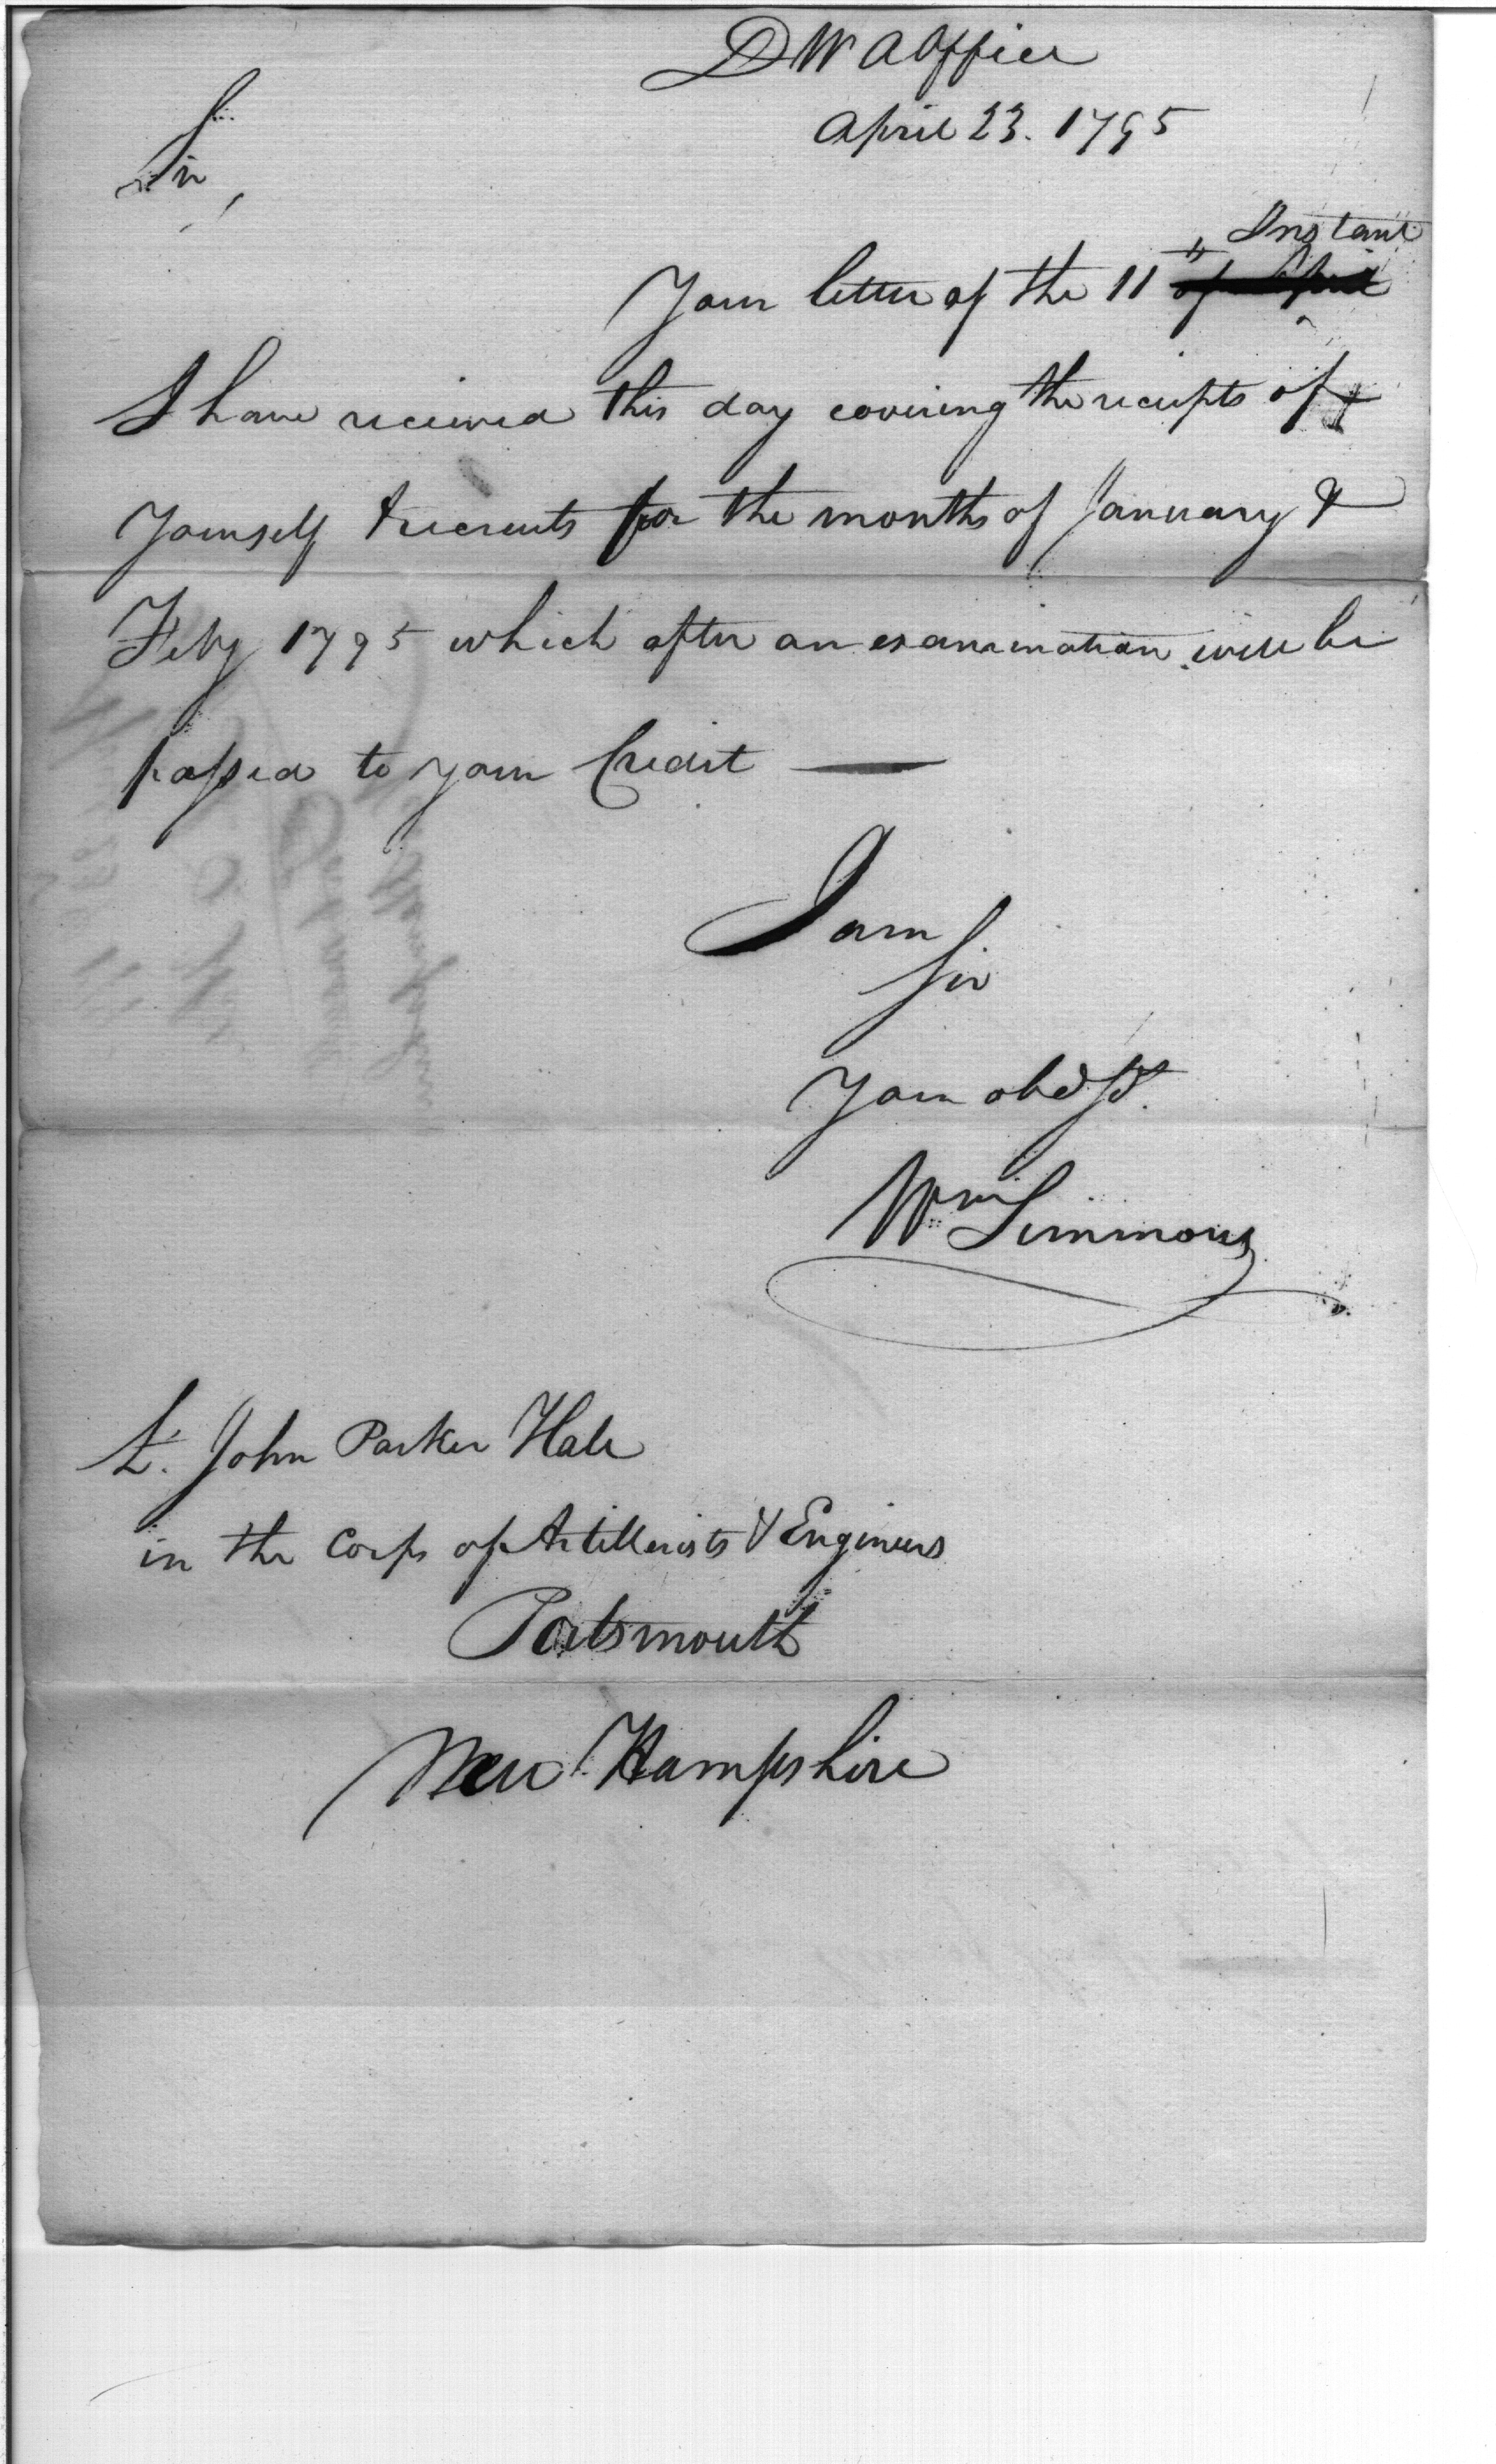 D W A Office
April 23. 1795
Sir,
Instant
Your letter of the 11th of April
I have received this day covering the receipts of
yourself & recruits for the months of January &
Feby 1795 which after an examination will be
passed to your Credit —
I am
Sir
Your obed St.
Wm Simmons
Lt. John Parker Hale
in the Corps of Artillerists & Engineers
Portsmouth
New Hampshire